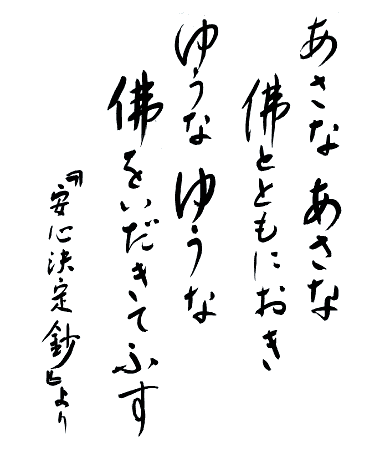 あさな あさな
佛とともにおき
ゆうな ゆうな
佛をいだきてふす
『安心決定鈔』より